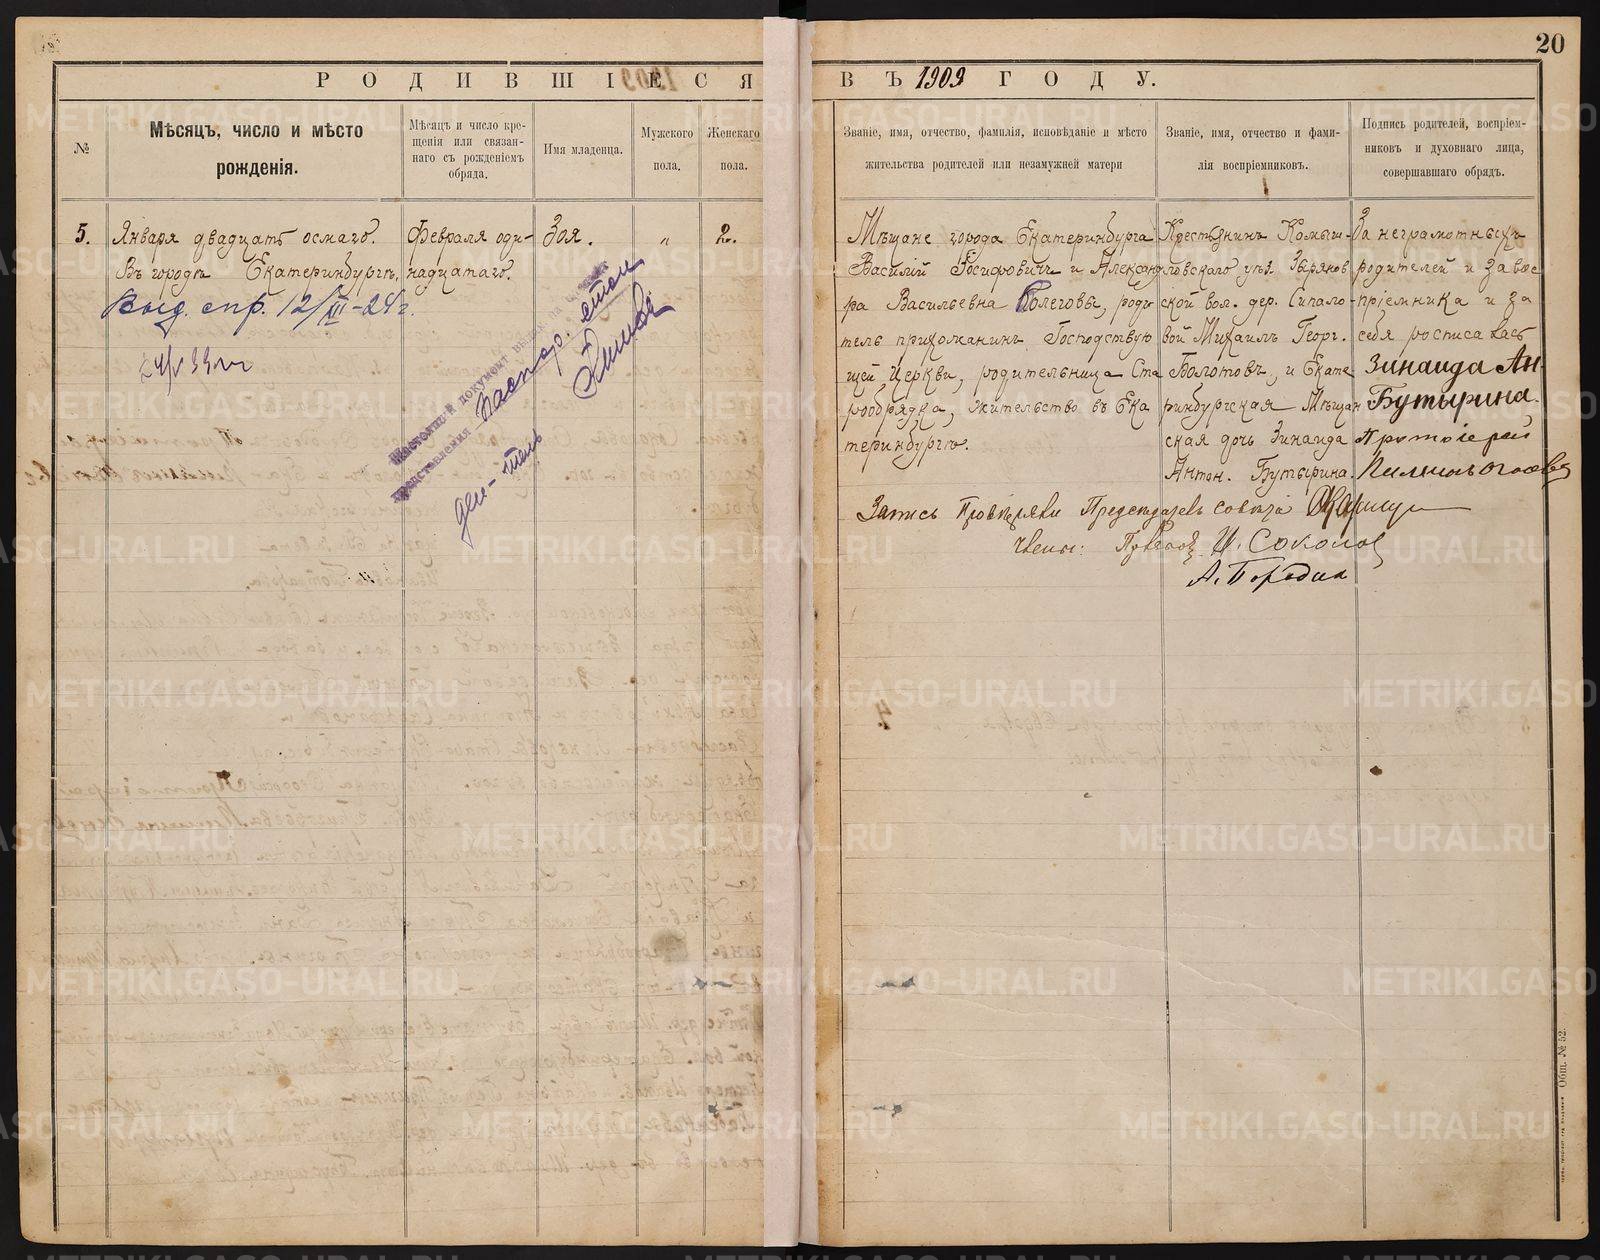 20
РОДИВШІЕСЯ ВЪ 1909 ГОДУ.
№
Мѣсяцъ, число и мѣсто
рожденія.
Мѣсяцъ и число кре-
щенія или связан-
наго съ рожденіемъ
обряда.
Имя младенца.
Мужского
пола.
Женскаго
пола.
Званіе, имя, отчество, фамилія, исповѣданіе и мѣсто
жительства родителей или незамужней матери
Званіе, имя, отчество и фами-
лія воспріемниковъ.
Подпись родителей, воспріем-
никовъ и духовнаго лица,
совершавшаго обрядъ.
5.
Января двадцать осмаго.
Въ городѣ Екатеринбургѣ,
Выд. спр. 12/III-24 г.
Февраля оди-
надцатаго.
Зоя.
"
2.
Настоящій документ выдан на
представления паспор.
Мѣщане города Екатеринбурга
Василій Іосифовичъ и Александ
ра Васильевна Болеговы, роди
тель прихожанинъ Господствую
щей Церкви, родительница Ста
рообрядка, жительство въ Ека
теринбургѣ.
Крестьянинъ Камыш-
ловскаго уѣз. Зырянов
ской вол. дер. Сипало-
вой Михаилъ Георг.
Болотовъ, и Екате
ринбургская Мѣщан
ская дочь Зинаида
Антон. Бутырина.
За неграмотныхъ
родителей и за вос
пріемника и за
себя росписалась
Зинаида Ан.
Бутырина.
Протоіерей
Запись Провѣряли Председатель совѣта
Члены: И. Соколов
А. Бородин
Общ. № 52.
METRIKI.GASO-URAL.RU